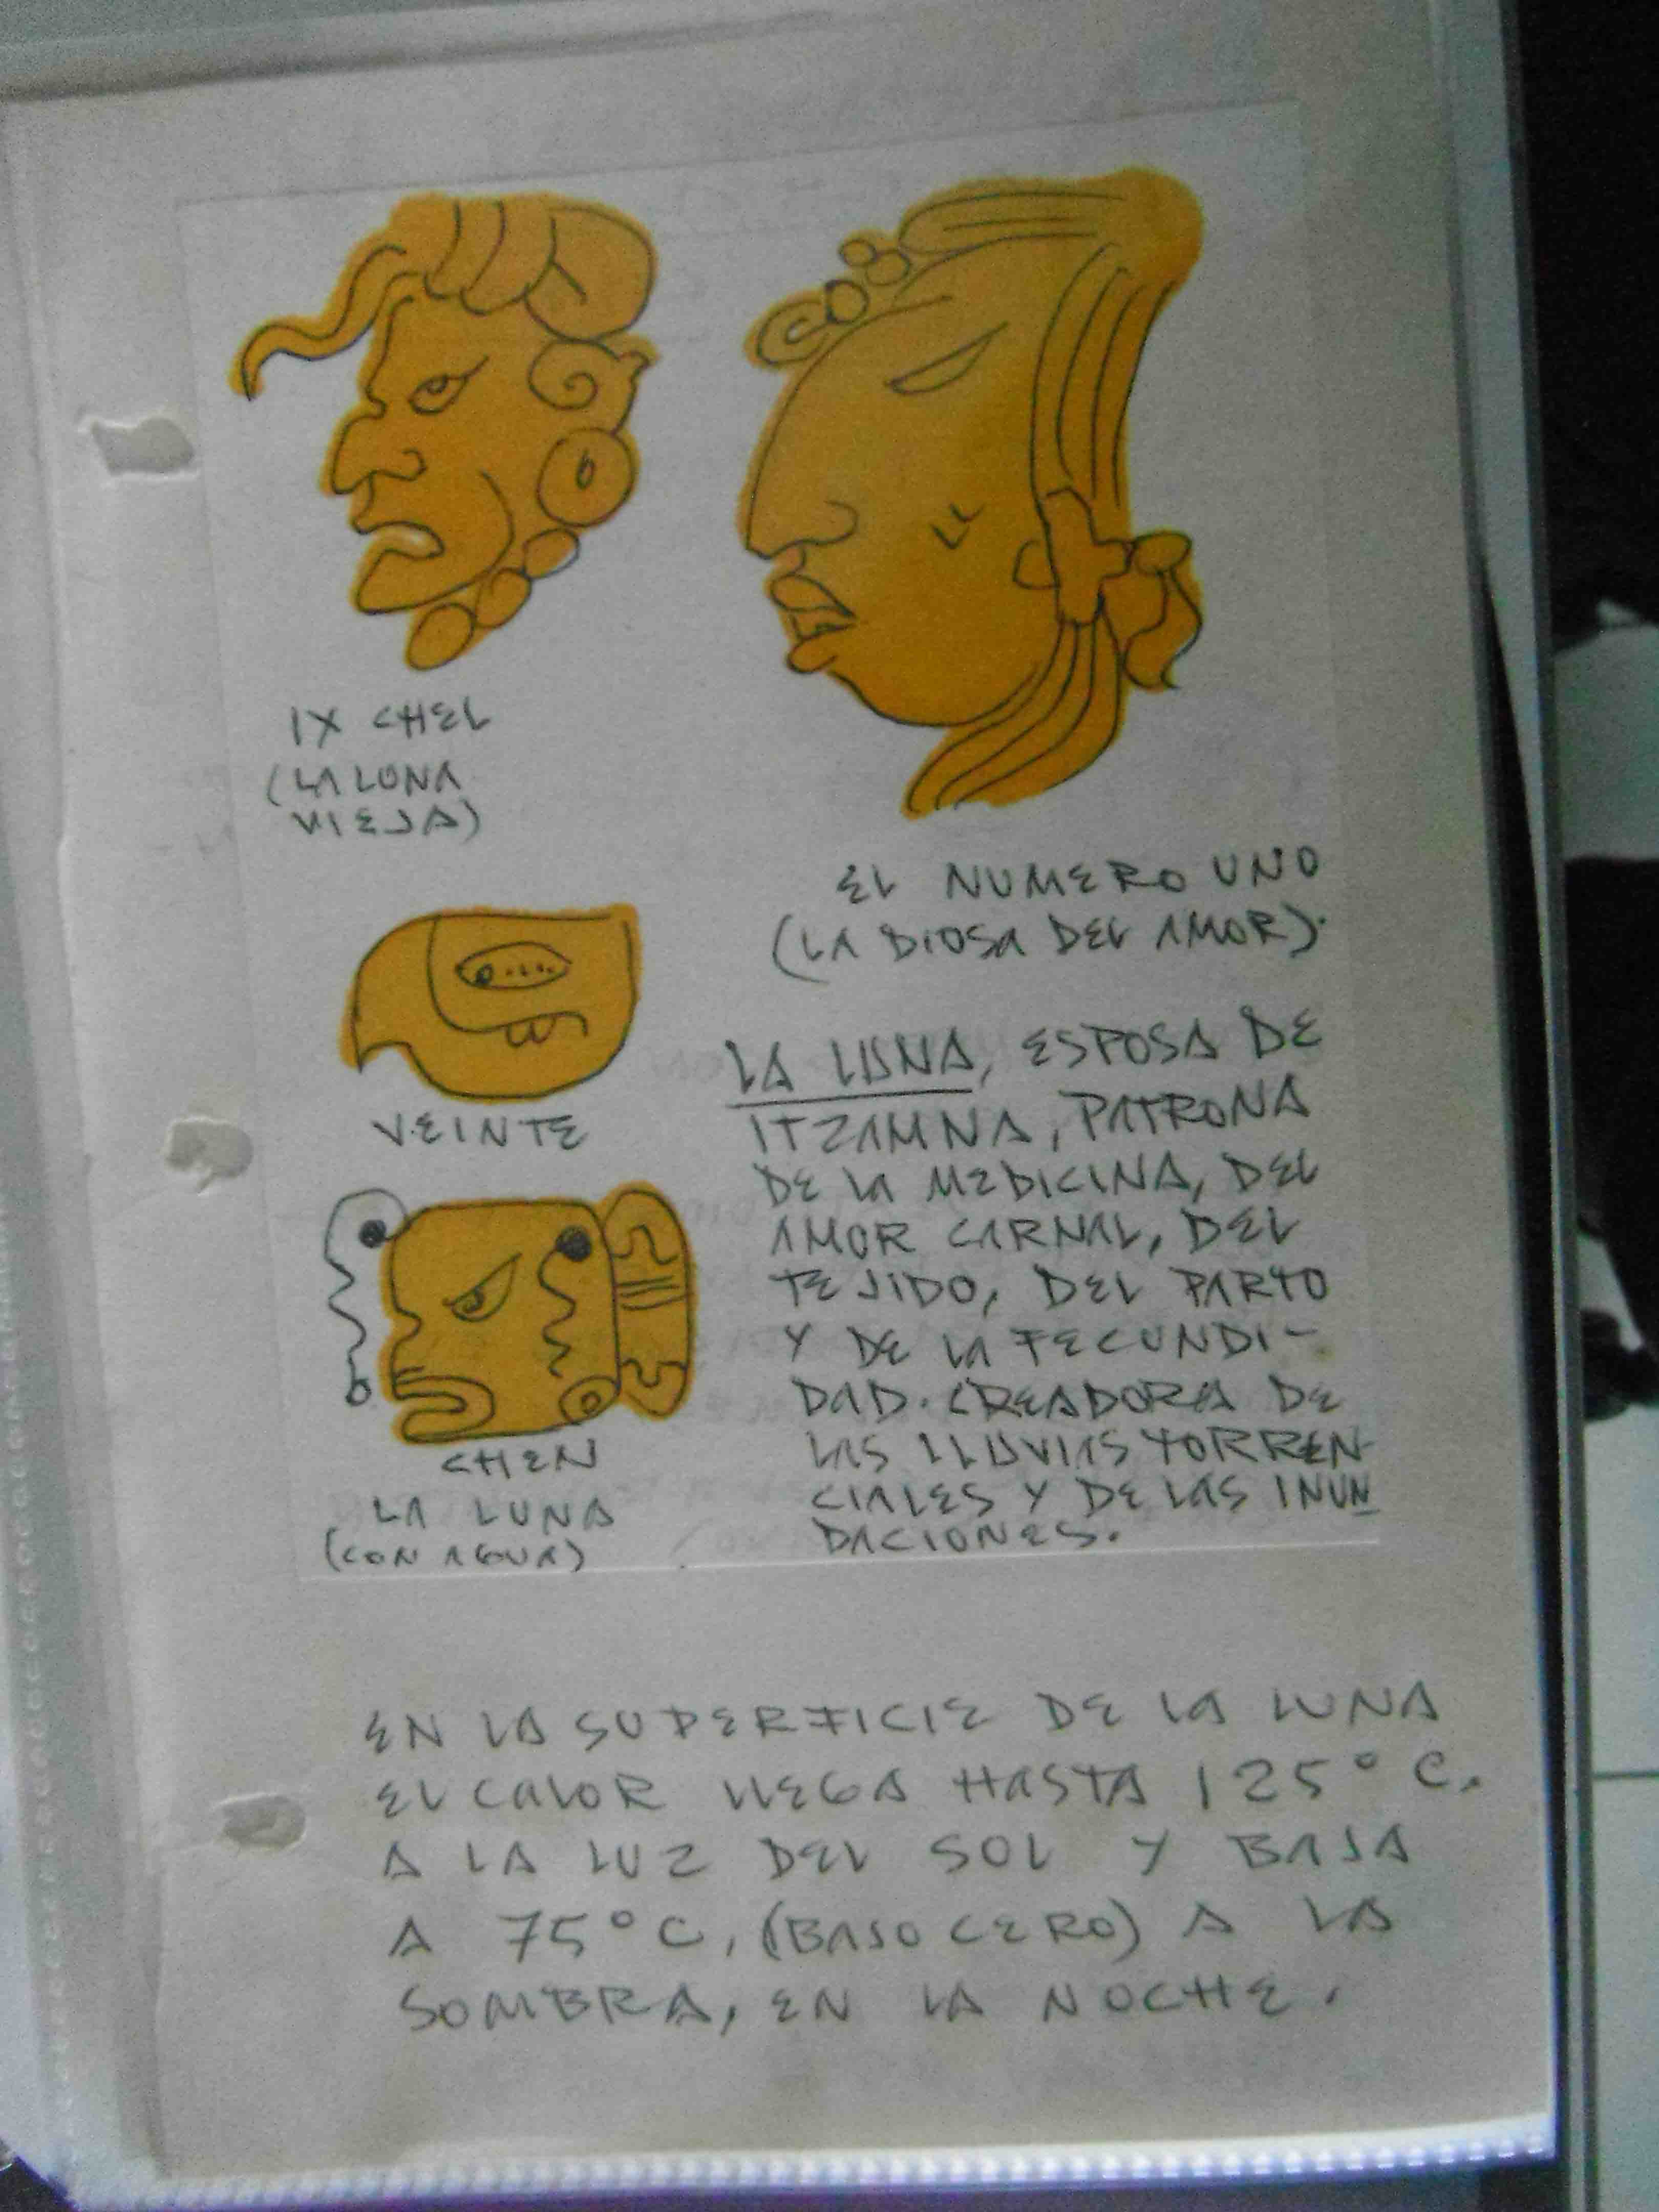 IX CHEL
(LA LUNA
VIEJA)
EL NUMERO UNO
(LA DIOSA DEL AMOR).
VEINTE
CHEN
LA LUNA
(CON AGUA)
LA LUNA, ESPOSA DE
ITZAMNA, PATRONA
DE LA MEDICINA, DEL
AMOR CARNAL, DEL
TEJIDO, DEL PARTO
Y DE LA FECUNDI-
DAD. CREADORA DE
LAS LLUVIAS TORREN-
CIALES Y DE LAS INUN
DACIONES.
EN LA SUPERFICIE DE LA LUNA
EL CALOR LLEGA HASTA 125° C.
A LA LUZ DEL SOL Y BAJA
A 75° C, (BAJO CERO) A LA
SOMBRA, EN LA NOCHE.